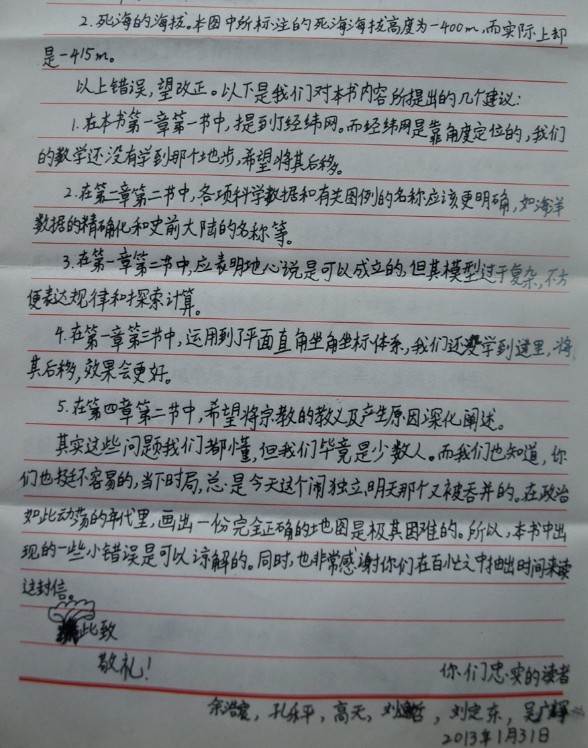 2.死海的海拔。本图中所标注的死海海拔高度为-400m,而实际上却
是-415m。
以上错误,望改正。以下是我们对本书内容所提出的几个建议:
1.在本书第一章第一节中,提到了经纬网。而经纬网是靠角度定位的,我们
的数学还没有学到那个地步,希望将其后移。
2.在第二章第二节中,各项科学数据和有关图例的名称应该更明确,如海洋
数据的精确化和史前大陆的名称等。
3.在第一章第二节中,应表明地心说是可以成立的,但其模型过于复杂,不方
便表达规律和探索计算。
4.在第一章第三节中,运用到了平面直角坐角坐标体系,我们还没学到这里,将
其后移,效果会更好。
5.在第四章第二节中,希望将宗教的教义及产生原因深化阐述。
其实这些问题我们都懂,但我们毕竟是少数人。而我们也知道,你
们也挺不容易的,当下时局,总是今天这个闹独立,明天那个又被吞并的。在政治
如此动荡的年代里,画出一份完全正确的地图是极其困难的。所以,本书中出
现的一些小错误是可以谅解的。同时,也非常感谢你们在百忙之中抽出时间来读
这封信。
此致
敬礼!
你们忠实的读者
余浩宸,孔乐平,高天,刘哲,刘定东,吴广辉
2013年1月31日